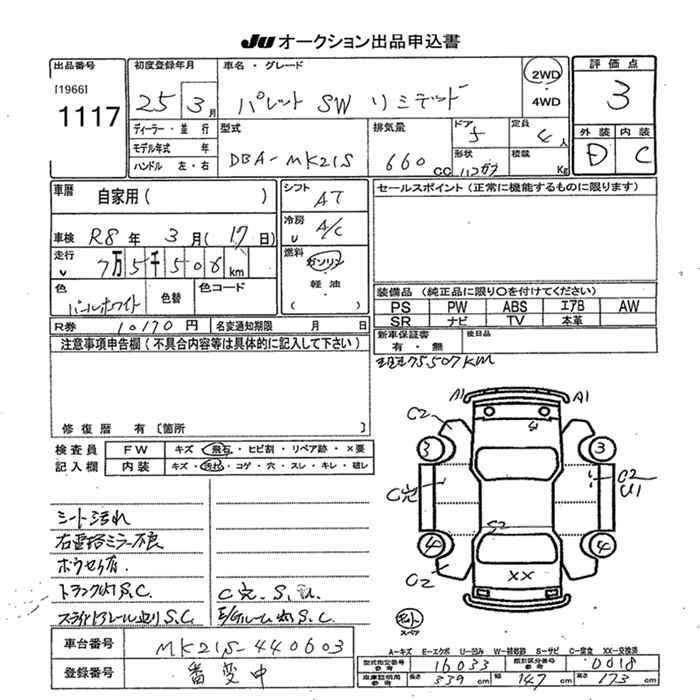 JU オークション出品申込書
出品番号
[1966]
1117
初度登録年月
25 3月
車名・グレード
パレット SW リミテッド
2WD
・
4WD
評価点
3
外装 内装
D C
ディーラー・並行
モデル年式 年
ハンドル 左・右
型式
DBA-MK21S
排気量
660 cc
ドア
5
形状
ハコガタ
定員
4人
積載
Kg
車歴
自家用( )
車検 R8年 3月(17日)
走行
7万5千506km
色
パールホワイト
色替
色コード
シフト
AT
冷房
A/C
燃料
ガソリン
・
軽油
・
( )
セールスポイント(正常に機能するものに限ります)
装備品(純正品に限り○を付けてください)
PS PW ABS エアB AW
SR ナビ TV 本革
R券 10170円 名変通知期限 月 日
新車保証書
有・無
後日品
注意事項申告欄(不具合内容等は具体的に記入して下さい)
現走75,507KM
修復歴 有〔箇所 〕
検査員
記入欄
FW キズ・飛石・ヒビ割・リペア跡・×要
内装 キズ・汚れ・コゲ・穴・スレ・キレ・破レ
シート汚れ
右電格ミラー不良
ボウセイ有.
S.C.
C穴. S.
スライドドアレール S.C.
E/Gルーム S.C.
A1 A1
C2
4
3 3
C穴
C2
U1
S2
4 4
C2
XX
スペア
車台番号 MK21S-440603
登録番号 番変中
A-キズ E-エクボ U-凹み W-補修跡 S-サビ C-腐食 XX-交換済
型式指定番号
参考
16033
類別区分番号
参考
0018
車庫証明用
参考
長さ 339cm 幅 147cm 高さ 173cm